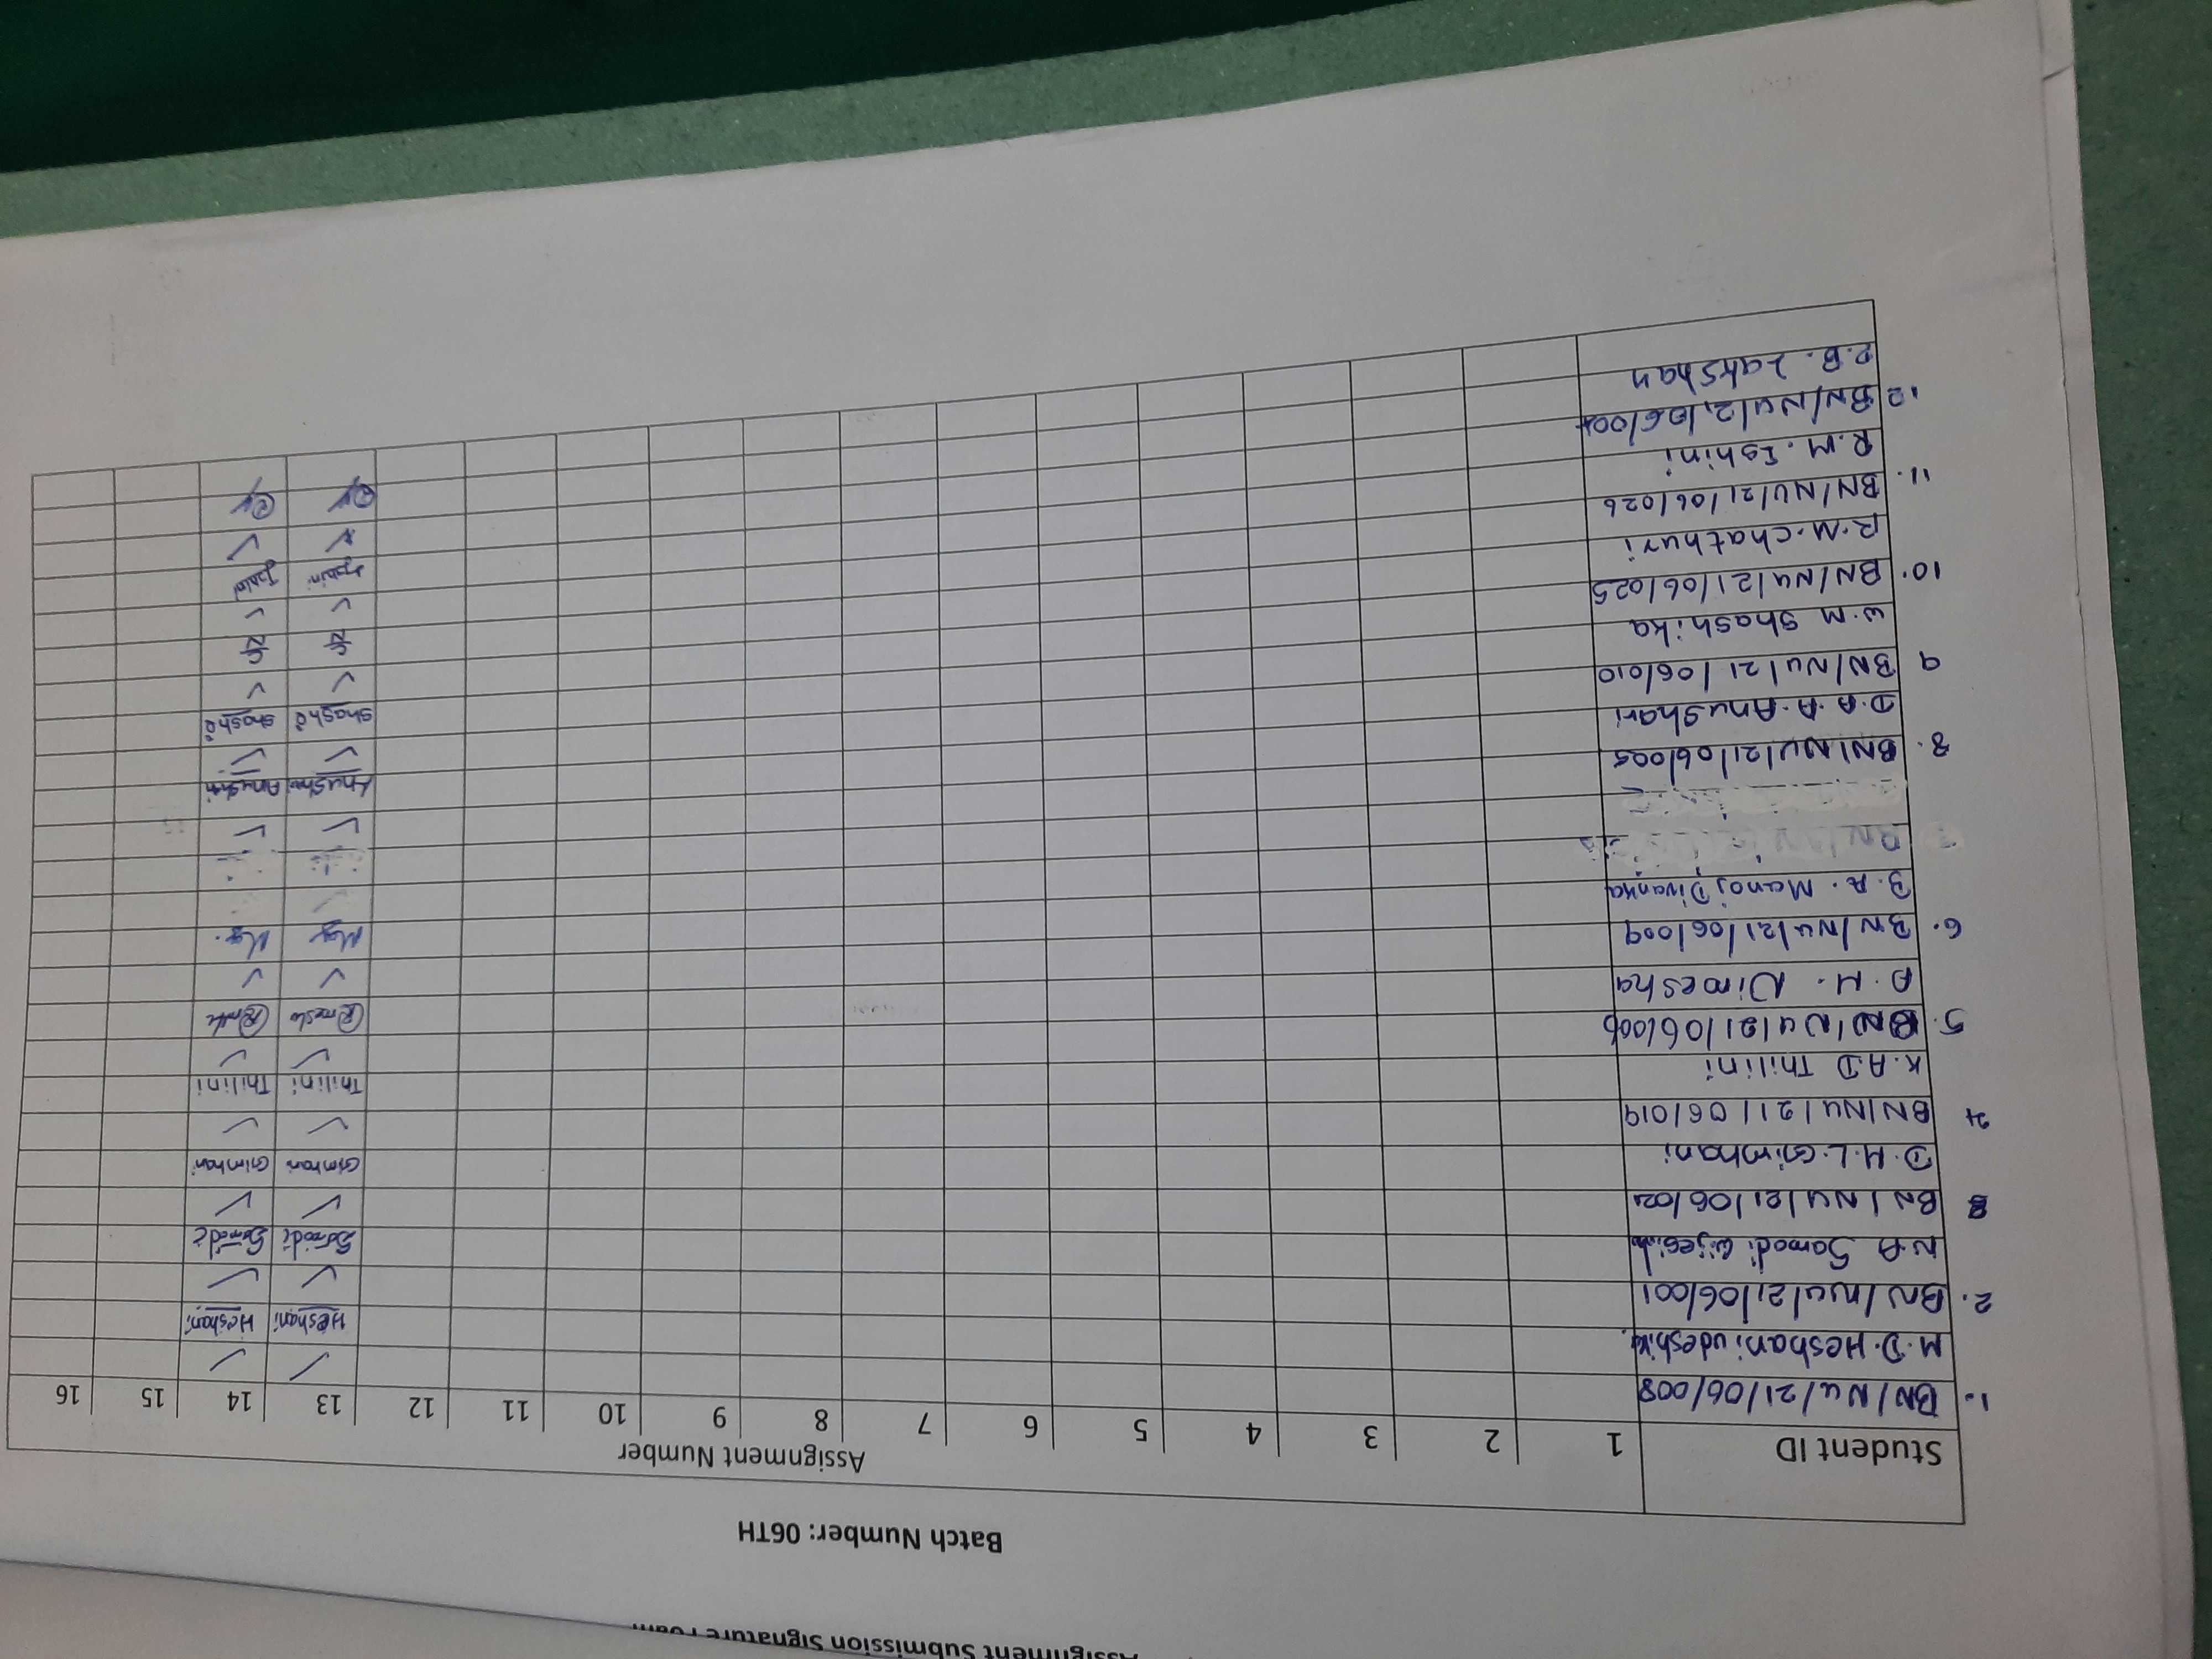 Assignment Submission Signature
Batch Number: 06TH
Student ID
Assignment Number
1 2 3 4 5 6 7 8 9 10 11 12 13 14 15 16
1. BN/NU/21/06/008 ✓ ✓
M.D. Heshani udeshika. Heshani Heshani
2. BN/NU/21/06/001 ✓ ✓
N.A Samodi Samodi Samodi
3 BN/NU/21/06/021 ✓ ✓
D.H.L. Gimhani Gimhani Gimhani
4 BN/NU/21/06/019 ✓ ✓
K.A.D Thilini Thilini Thilini
5. BN/NU/21/06/006 ✓ ✓
A.H. Nimesha
6. BN/NU/21/06/009 ✓ ✓
B.A. Manoj Divanka
8. BN/NU/21/06/005 ✓ ✓
D.A.A. Anushari Anushari
9 BN/NU/21/06/010 ✓ ✓
W.M Shashika Shashi Shashi
10. BN/NU/21/06/025 ✓ ✓
R.M. Chathuri
11. BN/NU/21/06/026 ✓ ✓
R.M. Eshini
12 BN/NU/21/06/004 ✓
R.B. Lakshan